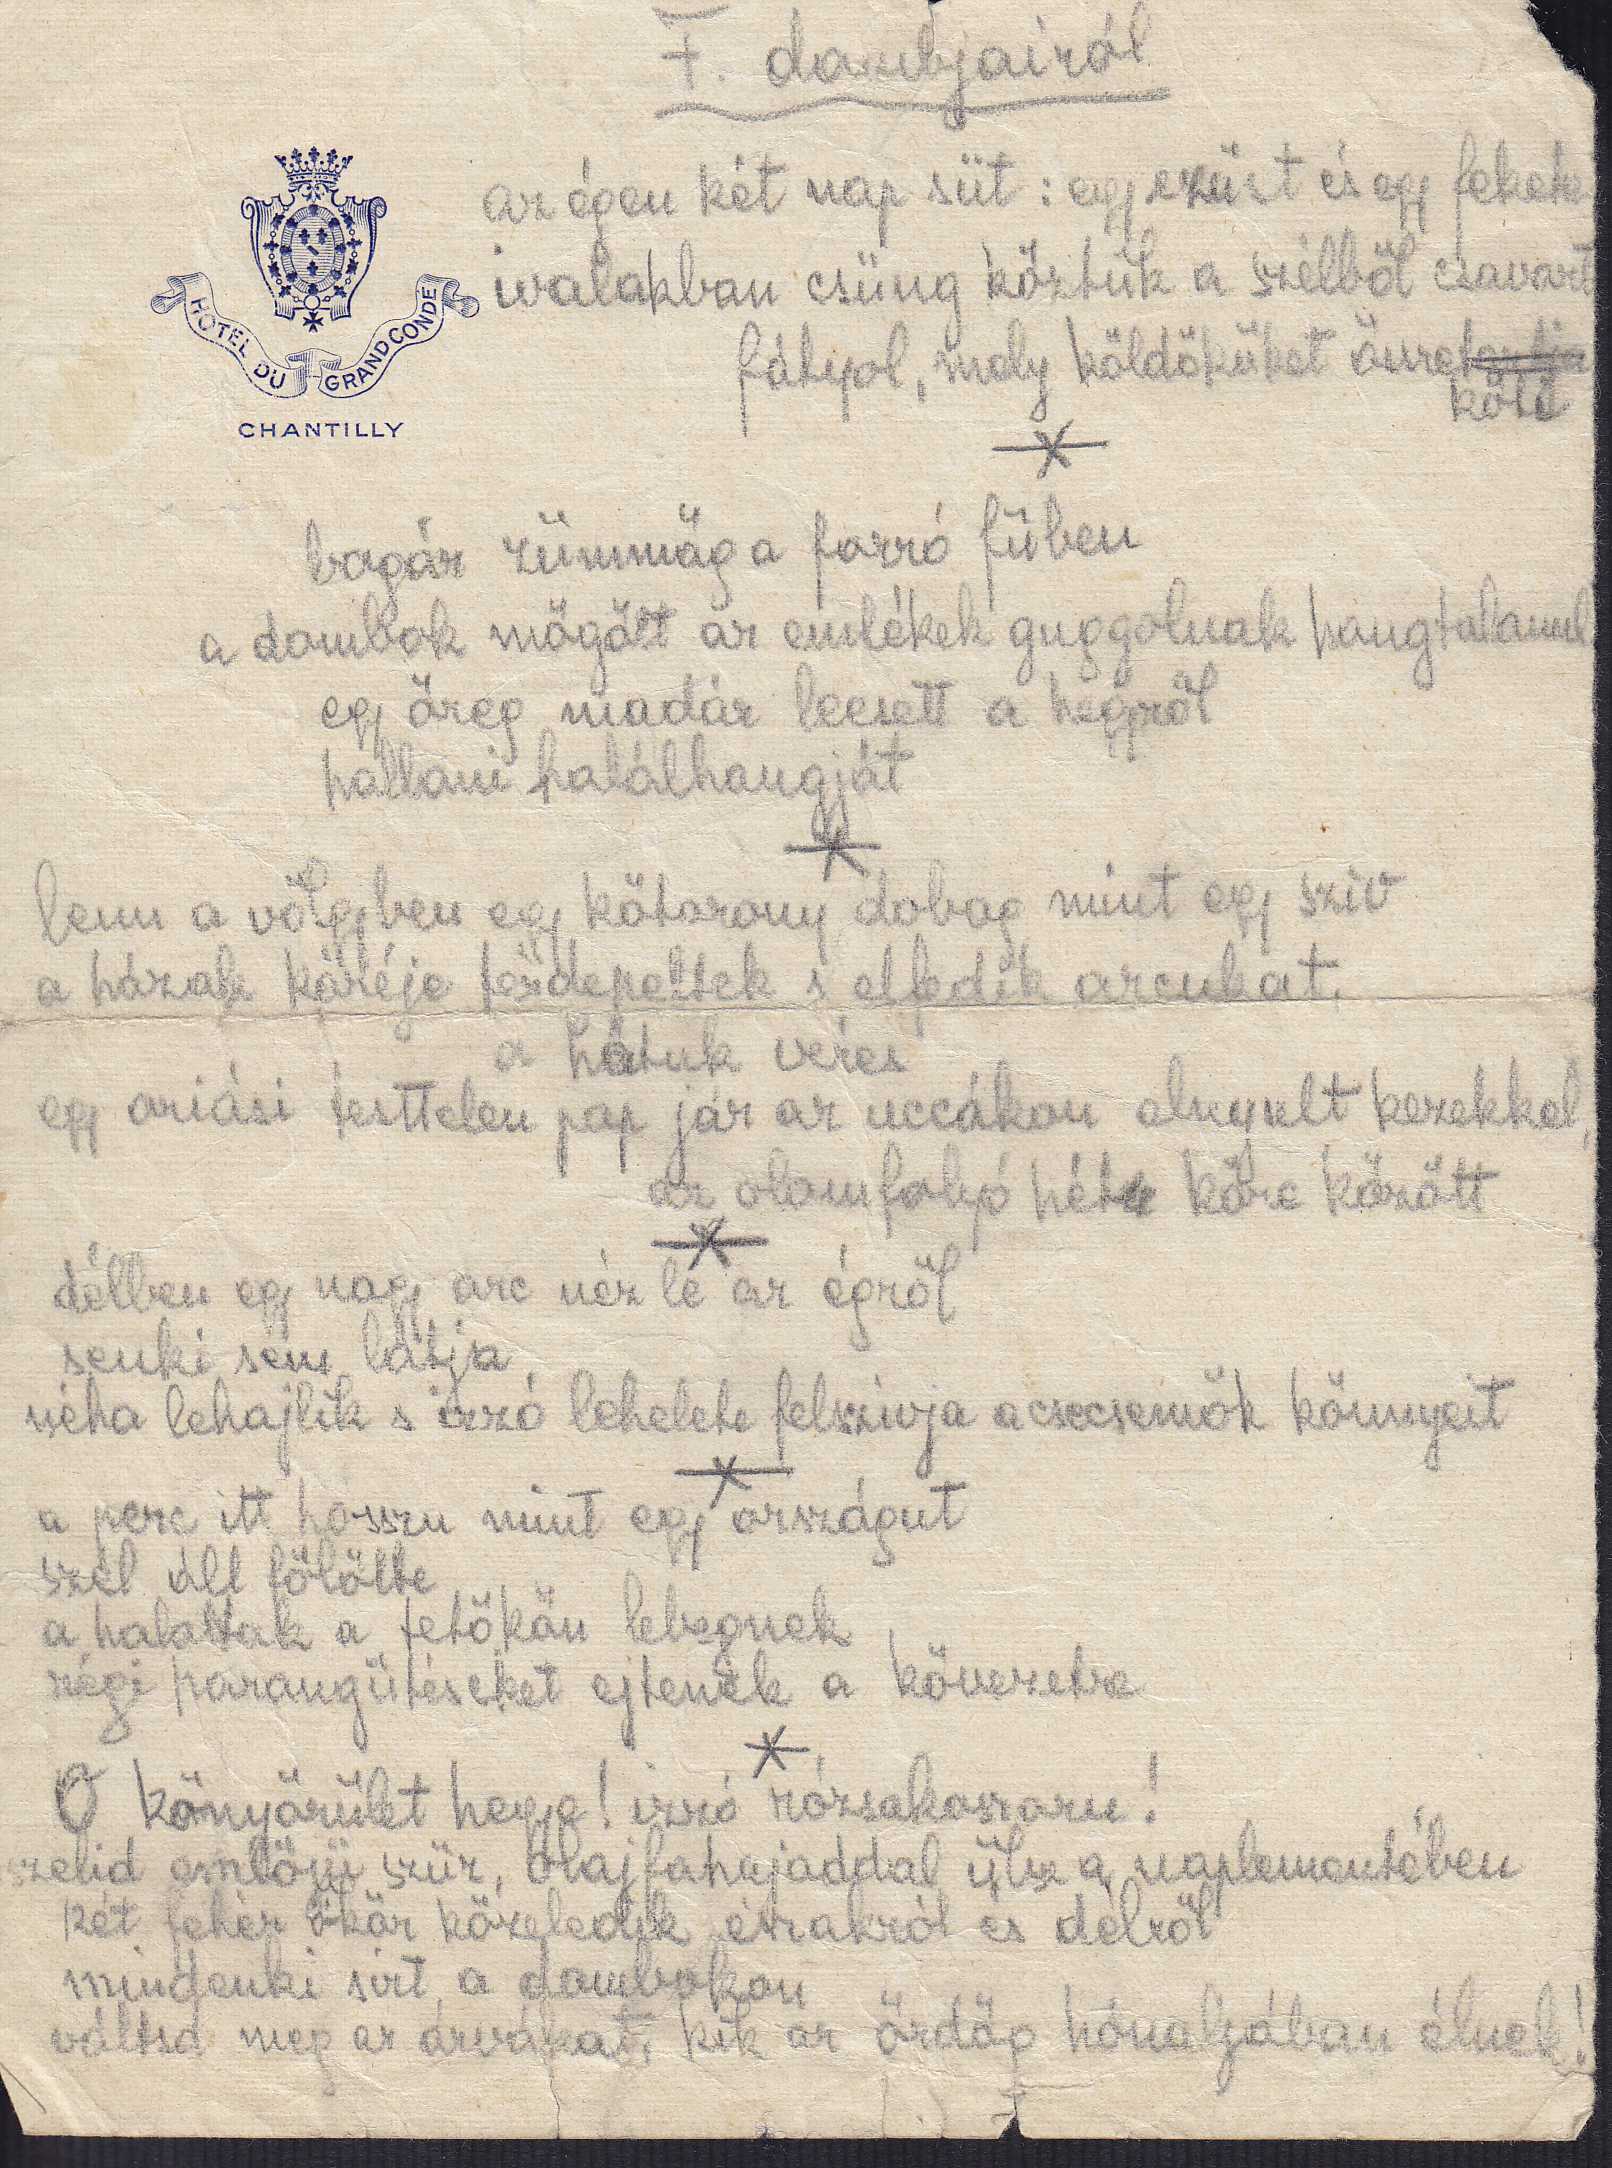 F. dombjairól
HOTEL DU GRAND CONDE
CHANTILLY
az égen két nap süt : egy ezüst és egy fekete
ivalakban csüng köztük a szélből csavart
fátyol, mely köldöküket
köti
bogár zümmög a forró fűben
a dombok mögött az emlékek guggolnak hangtalanul
egy öreg madár leesett a hegyről
hallani halálhangját
lenn a völgyben egy kőtorony dobog mint egy sziv
a házak köréje térdepeltek s elfedik arcukat,
a hátuk véres
egy óriási testtelen pap jár az uccákon elnyult kezekkel,
az olomfolyó hét köre között
délben egy nagy arc néz le az égről
senki sem látja
néha lehajlik s izzó lehelete felszivja a csecsemők könnyeit
a perc itt hosszu mint egy országut
szél áll fölötte
a halottak a tetőkön lebegnek
régi harangütéseket ejtenek a kövezetre
Ó könyörület hegye! izzó rózsakoszoru!
szelid emlőjü szüz, olajfahajaddal ülsz a naplementében
két fehér ökör közeledik északról és délről
mindenki sirt a dombokon
váltsd meg az árvákat, kik az ördög hónaljában élnek!